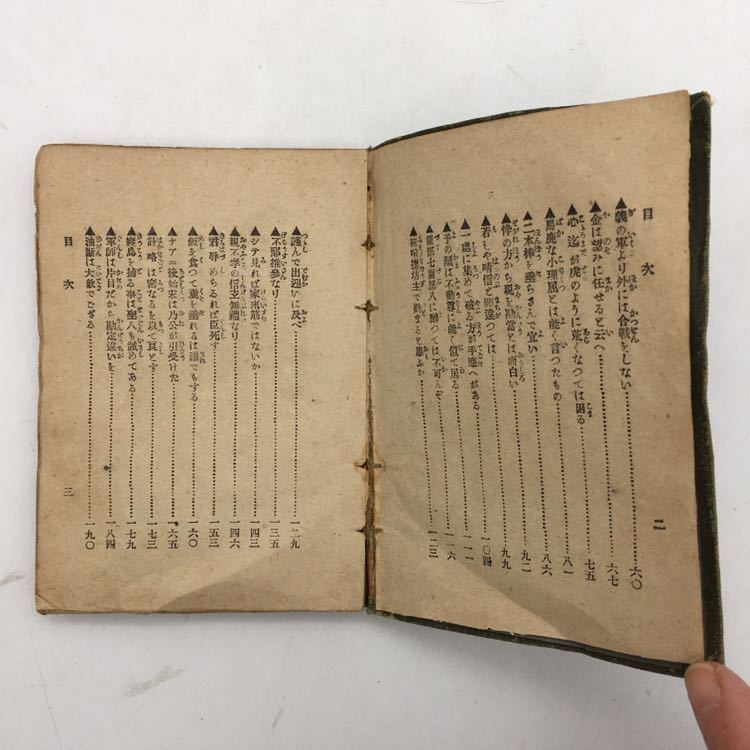 目次
▲義の軍より外には合戦をしない………六〇
▲金は望みに任せると云へ………六七
▲心迄が虎のように荒くなつては困る………七五
▲馬鹿な小理屈とは能く言つたもの………八一
▲二本棒を垂らさんで宜い………八六
▲倅の方から親を勘當とは面白い………九二
▲若しや晴信と間違つては………九九
▲一處に集めて破る方が手應へがある………一〇四
▲予の顔は不動尊に能く似て居る………一一一
▲服部七郎八に酔つては不可んぞ………一一六
坊主で動ずると思ふか………一二三
二
▲謹んで出迎ひに及べ………一二九
▲不邪推参なり………一三五
▲シテ見れば家來筋ではないか………一四三
▲親不孝の信玄無禮なり………一四六
▲君辱しめらるれば臣死す………一五三
▲飯を食つて糞を垂れるは誰でもする………一六〇
▲ナアニ後始末は乃公が引受けた………一六五
▲計略は密なるを以て良とす………一七三
を捕る事は聖人も試めてある………一七九
▲軍師は片目だから勘定違いを………一八四
▲油斷は大敵でござる………一九〇
目次
三